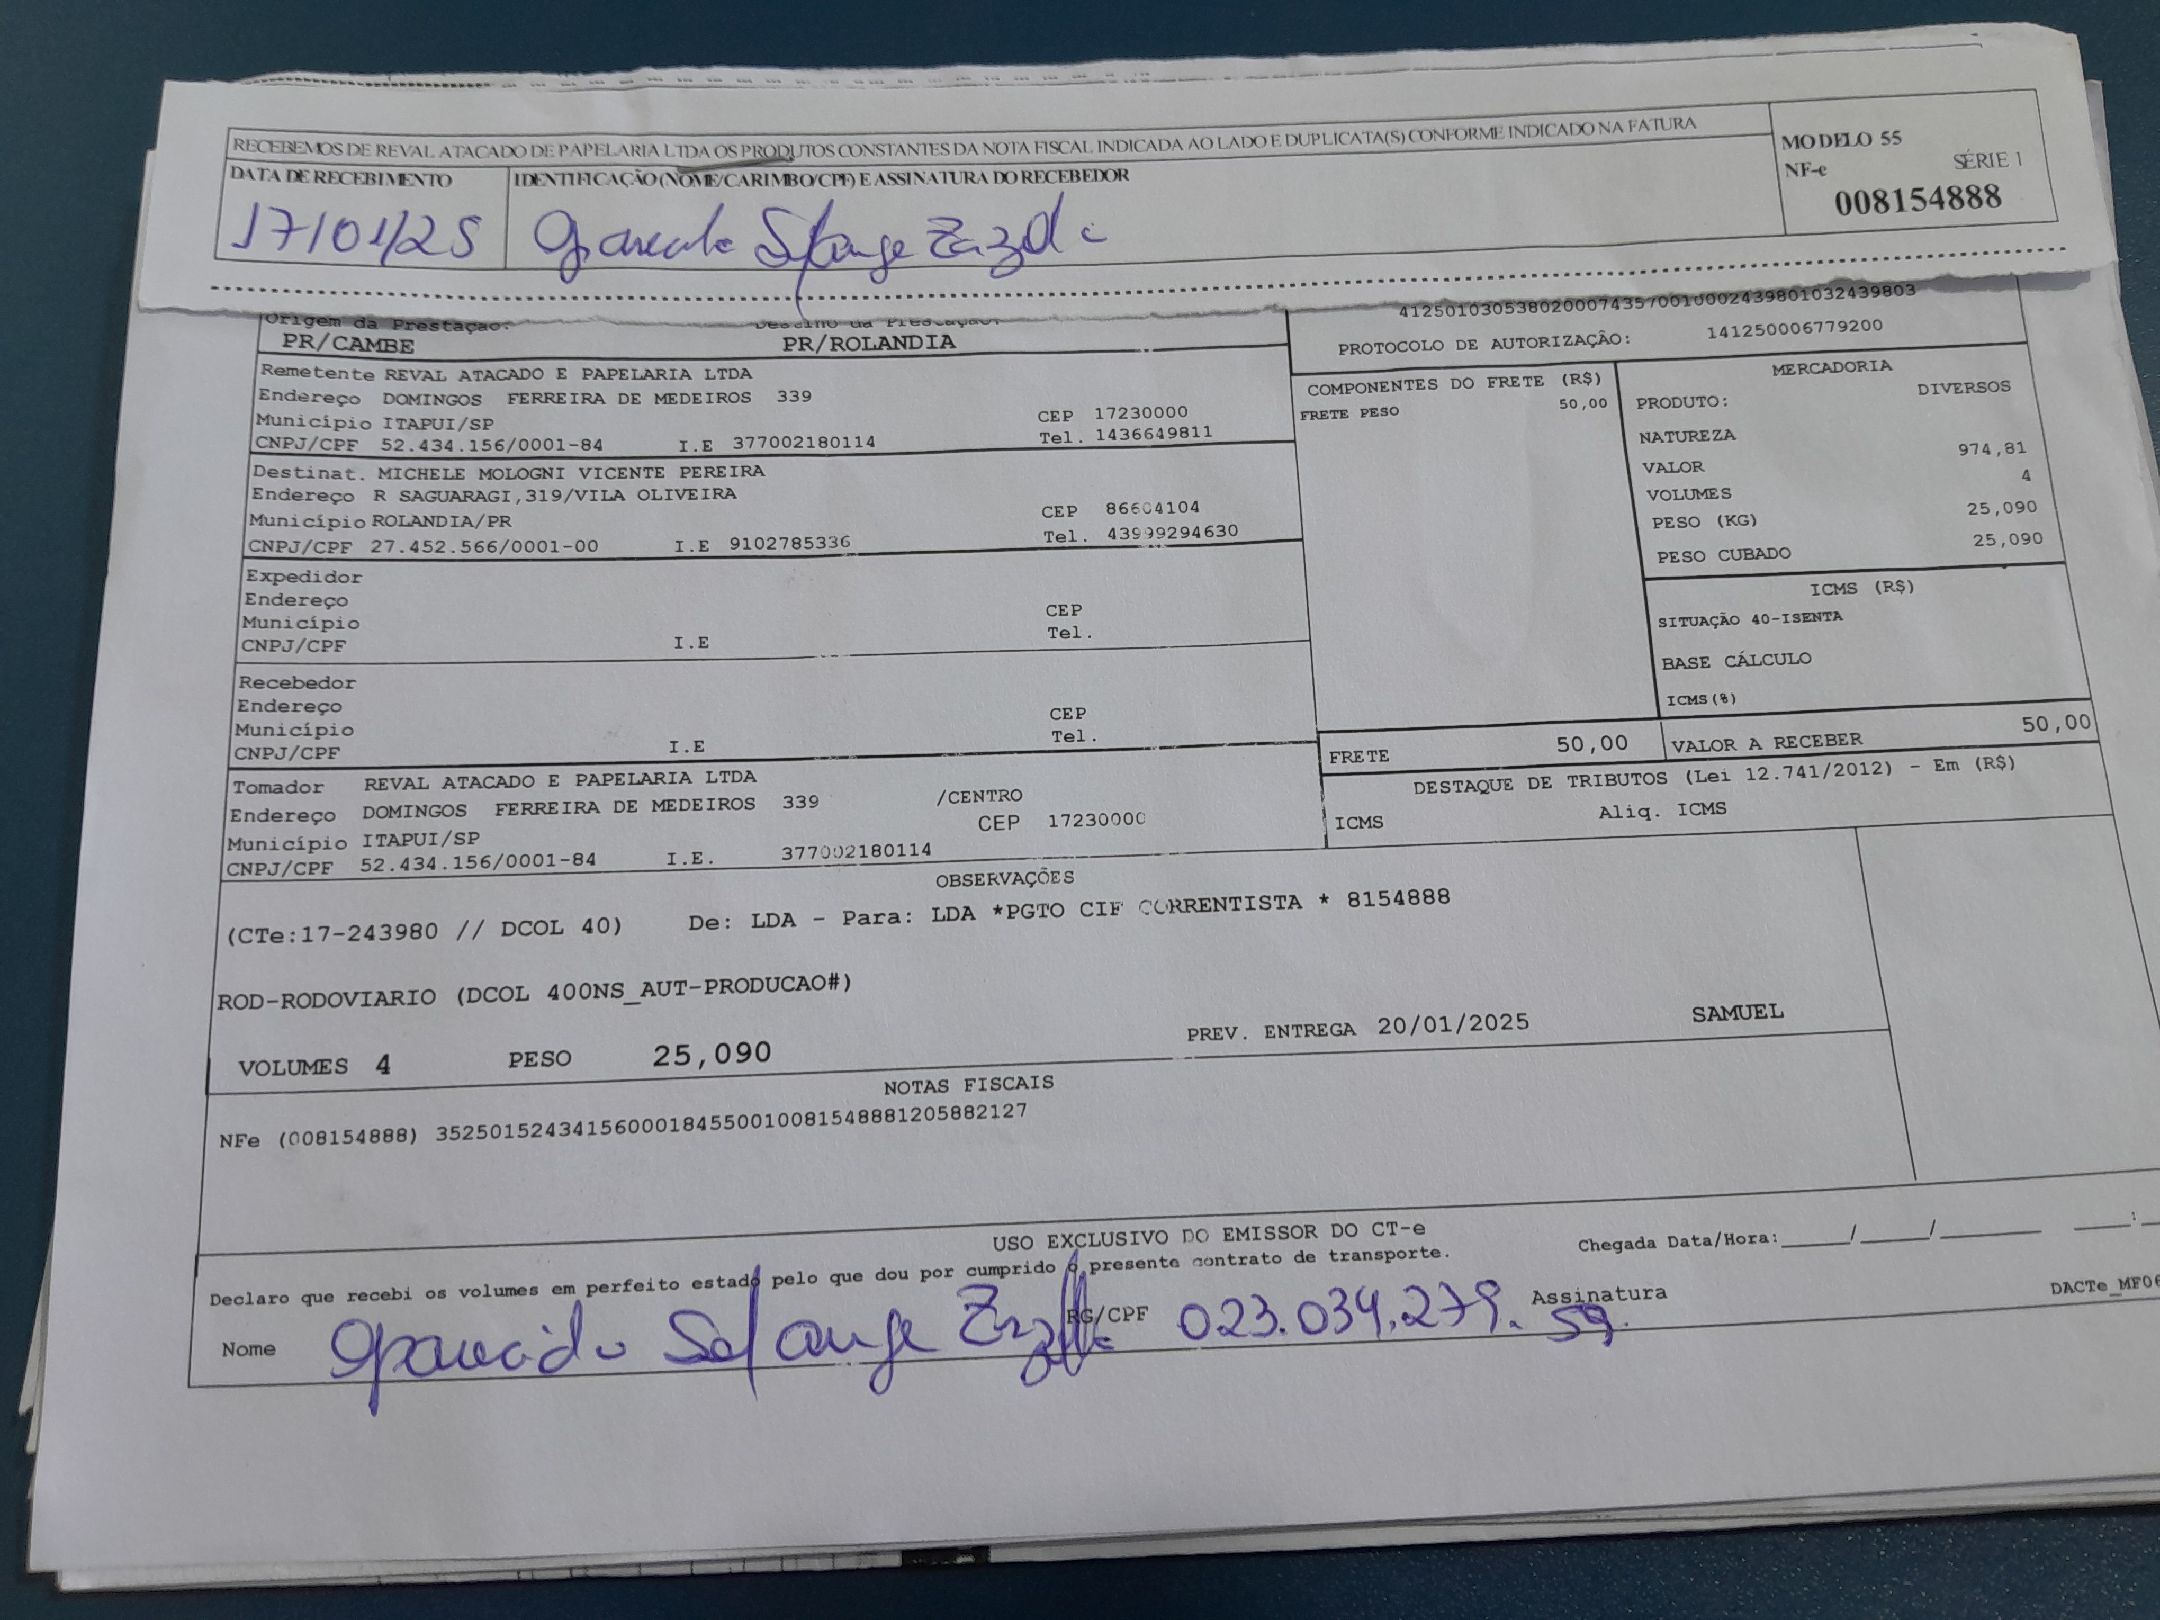 RECEBEMOS DE REVAL ATACADO DE PAPELARIA LTDA OS PRODUTOS CONSTANTES DA NOTA FISCAL INDICADA AO LADO E DUPLICATA(S) CONFORME INDICADO NA FATURA
MODELO 55
DATA DE RECEBIMENTO IDENTIFICAÇÃO (NOME/CARIMBO/CPF) E ASSINATURA DO RECEBEDOR
NF-e SÉRIE 1
008154888
17/01/25
41250103053802000743570010002439801032439803
Origem da Prestação: Destino da Prestação:
PR/CAMBE PR/ROLANDIA
PROTOCOLO DE AUTORIZAÇÃO: 141250006779200
Remetente REVAL ATACADO E PAPELARIA LTDA
Endereço DOMINGOS FERREIRA DE MEDEIROS 339
Município ITAPUI/SP CEP 17230000
CNPJ/CPF 52.434.156/0001-84 I.E 377002180114 Tel. 1436649811
COMPONENTES DO FRETE (R$)
FRETE PESO 50,00
MERCADORIA
PRODUTO: DIVERSOS
NATUREZA
VALOR 974,81
VOLUMES 4
PESO (KG) 25,090
PESO CUBADO 25,090
Destinat. MICHELE MOLOGNI VICENTE PEREIRA
Endereço R SAGUARAGI,319/VILA OLIVEIRA
Município ROLANDIA/PR CEP 86604104
CNPJ/CPF 27.452.566/0001-00 I.E 9102785336 Tel. 43999294630
Expedidor
Endereço
Município CEP
CNPJ/CPF I.E Tel.
ICMS (R$)
SITUAÇÃO 40-ISENTA
BASE CÁLCULO
ICMS(%)
Recebedor
Endereço
Município CEP
CNPJ/CPF I.E Tel.
FRETE 50,00 VALOR A RECEBER 50,00
Tomador REVAL ATACADO E PAPELARIA LTDA
Endereço DOMINGOS FERREIRA DE MEDEIROS 339 /CENTRO
Município ITAPUI/SP CEP 17230000
CNPJ/CPF 52.434.156/0001-84 I.E. 377002180114
DESTAQUE DE TRIBUTOS (Lei 12.741/2012) - Em (R$)
ICMS Aliq. ICMS
OBSERVAÇÕES
(CTe:17-243980 // DCOL 40) De: LDA - Para: LDA *PGTO CIF CORRENTISTA * 8154888
ROD-RODOVIARIO (DCOL 400NS_AUT-PRODUCAO#)
VOLUMES 4 PESO 25,090 PREV. ENTREGA 20/01/2025 SAMUEL
NOTAS FISCAIS
NFe (008154888) 35250152434156000184550010081548881205882127
USO EXCLUSIVO DO EMISSOR DO CT-e
Declaro que recebi os volumes em perfeito estado pelo que dou por cumprido o presente contrato de transporte.
Chegada Data/Hora:_____/_____/______ ____:
Nome RG/CPF 023.034.279.59. Assinatura
DACTe_MF06